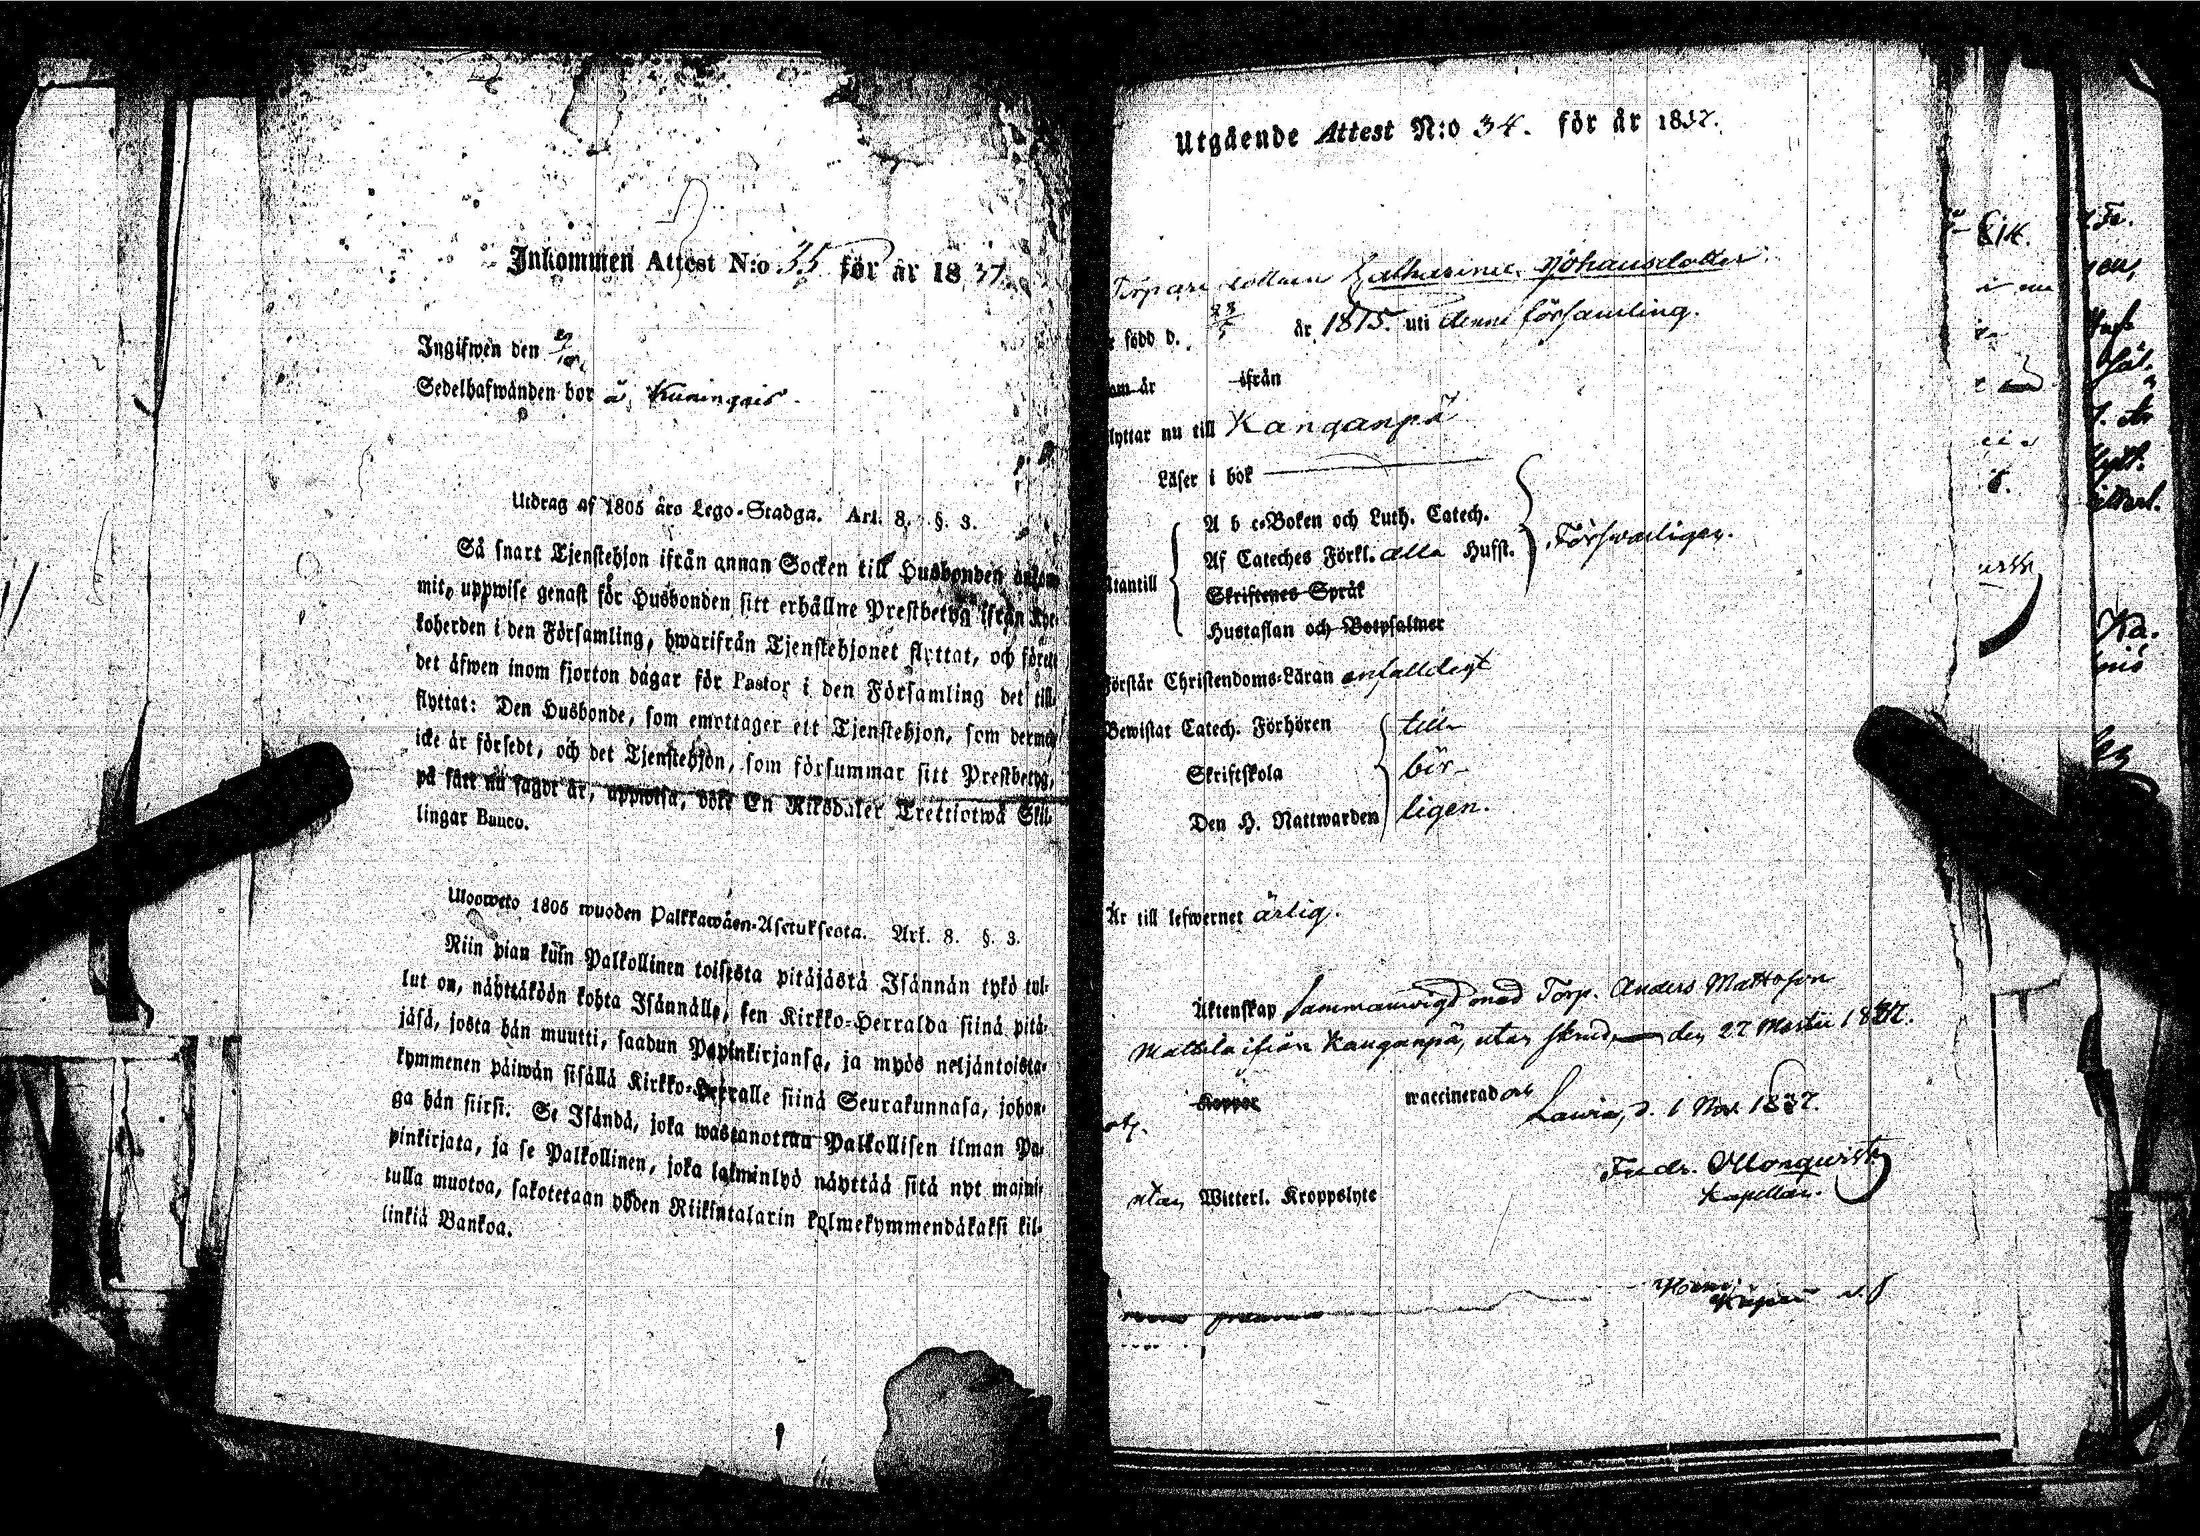 Inkommen Attest N:o 35 för år 1837.
Ingifwen den 29/10
Sedelhafwanden bor å Kuningais.
Utdrag af 1805 års Lego-Stadga. Art. 8. §. 3.
Så snart Tjenstehjon ifrån annan Socken till Husbonden
mit, uppwise genast för Husbonden sitt erhållne Prestbetyg ifrån Kyr-
koherden i den Församling, hwarifrån Tjenstehjonet flyttat, och förete
det äfwen inom fjorton dagar för Pastor i den Församling det till-
flyttat: Den Husbonde, som emottager ett Tjenstehjon, som dermed
icke är försedt, och det Tjenstehjon, som försummar sitt Prestbetyg,
på sätt nu sagdt är, uppwisa, böte En Riksdaler Trettiotwå Skil-
lingar Banco.
Ulosweto 1805 wuoden Palkkawäen-Asetuksesta. Art. 8. §. 3.
Niin pian kuin Palkollinen toisesta pitäjästä Isännän tykö tul-
lut on, näyttäköön kohta Isännälle, sen Kirkko-Herralda siinä pitä-
jäsä, josta hän muutti, saadun Papinkirjansa, ja myös neljäntoista-
kymmenen päiwän sisällä Kirkko-Herralle siinä Seurakunnasa, johon-
ga hän siirsi. Se Isändä, joka wastanottaa Palkollisen ilman Pa-
pinkirjata, ja se Palkollinen, joka laiminlyö näyttää sitä nyt maini-
tulla muotoa, sakotetaan yhden Riikintalarin kolmekymmendäkaksi kil-
linkiä Bankoa.
Utgående Attest N:o 34. för år 1837.
Torpare dottren Catharina Johansdotter
född d. 23/5 år 1815. uti denna församling.
am år ifrån
lyttar nu till Kanganpä
Läser i bok
A b c-Boken och Luth. Catech.
Af Cateches Förkl. alla Hufst. Förswarligen.
tantill
Skriftenes Språk
Hustaflan och Botpsalmer
Förstår Christendoms-Läran enfalldigt
Bewistat Catech. Förhören till-
Skriftskola bör-
Den H. Nattwarden ligen.
Är till lefwernet ärlig.
Äktenskap Sammanvigd med Torp. Anders Mattsson
Mattila ifrån Kanganpä, utan skrud, den 27 Martii 1837.
Koppor waccinerad
Lawia, d. 1 Nov. 1837.
Fredr. Monquist
Kapellan.
utan Witterl. Kroppslyte